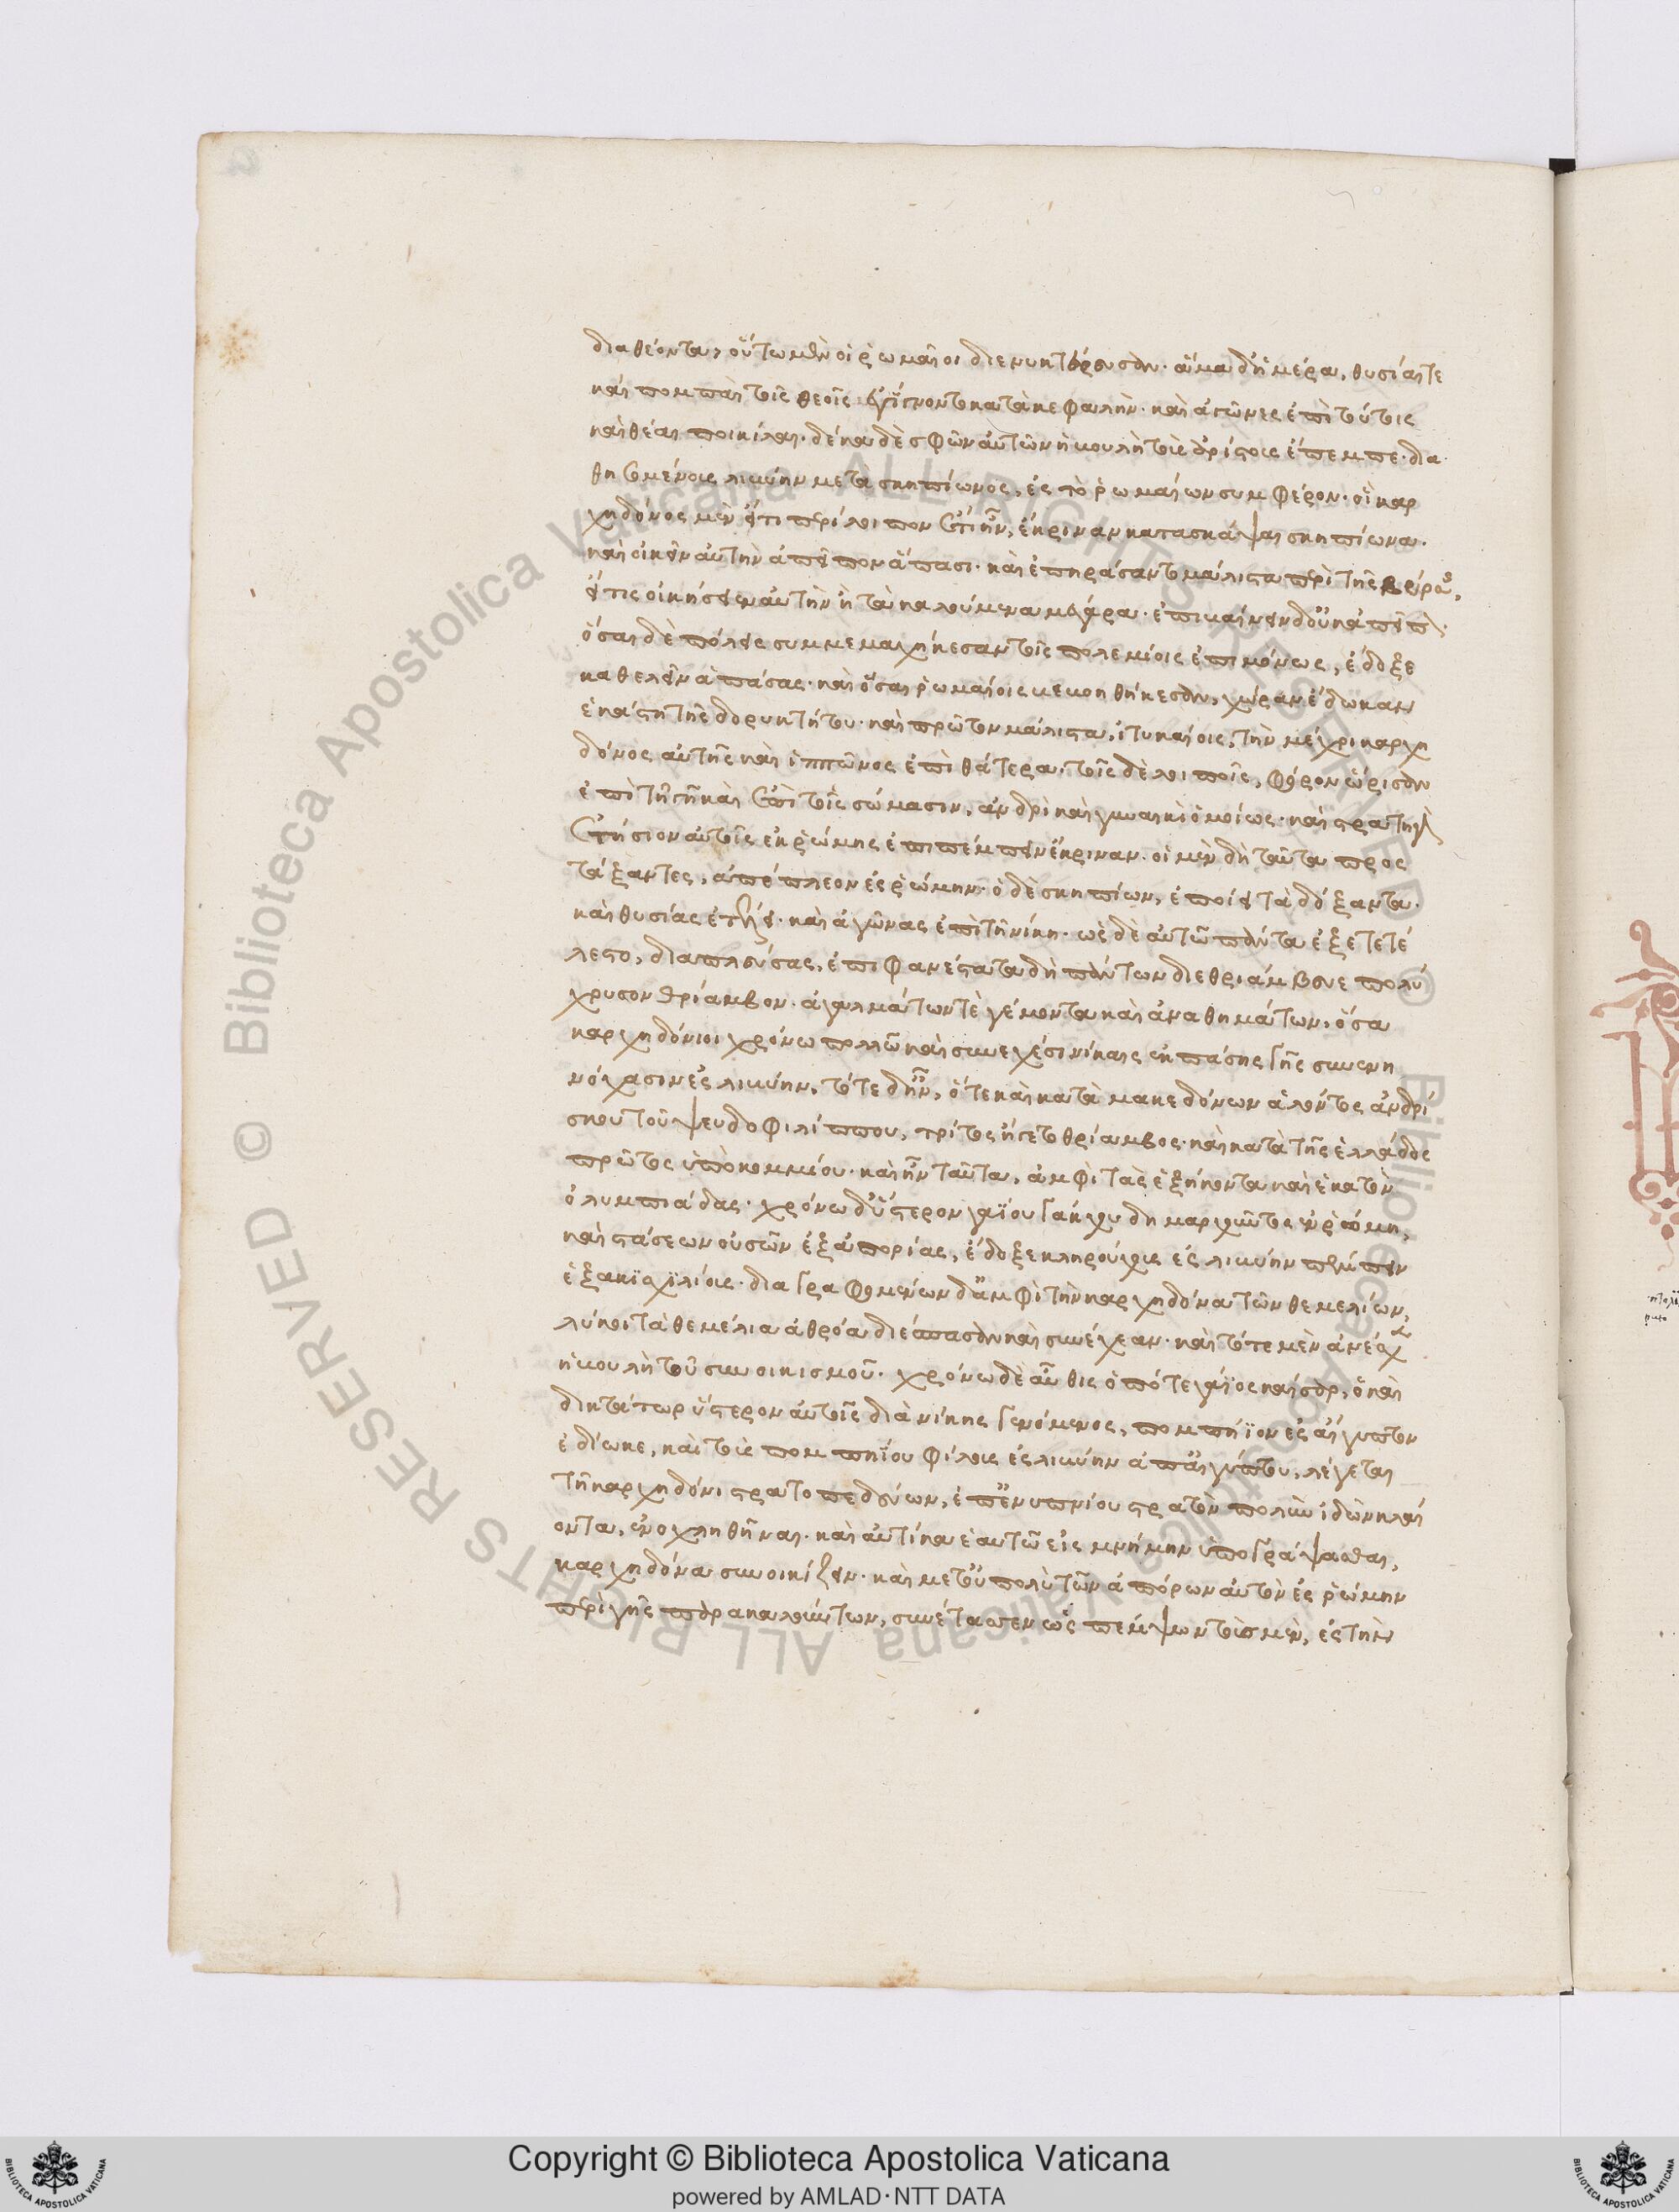 διαθέοντα, οὕτω μὲν οἱ ῥωμαῖοι διενυκτέρευσαν. ἅμα δ' ἡμέρα, θυσίαι τε
καὶ πομπαὶ τοῖς θεοῖς ἐγίγνοντο κατὰ κεφαλήν. καὶ ἀγῶνες ἐπὶ τούτοις
καὶ θέαι ποικίλαι. δέκα δὲ σφῶν αὐτῶν ἡ βουλὴ τοὺς ἀρίστους ἔπεμπε. δια
θησομένους λιβύην μετὰ σκηπίωνος, ἐς τὸ ῥωμαίων συμφέρον. οἳ καρ
χηδόνος μὲν εἴ τι περίλοιπον ἔτι ἦν, ἔκριναν κατασκάψαι σκηπίωνα.
καὶ οἰκεῖν αὐτὴν ἀπεῖπον ἅπασι. καὶ ἐπηράσαντο μάλιστα περὶ τῆς βύρσης,
εἴ τις οἰκήσειεν αὐτὴν ἢ τὰ καλούμενα μέγαρα. ἐπιβαίνειν δ' οὐκ ἀπεῖπον.
ὅσαι δὲ πόλεις συμμεμαχήκεσαν τοῖς πολεμίοις ἐπιμόνως, ἔδοξε
καθελεῖν ἁπάσας. καὶ ὅσαι ῥωμαίοις βεβοηθήκεσαν, χώραν ἔδωκαν
ἑκάστη τῆς δορικτήτου. καὶ πρῶτον μάλιστα, ἰτυκαίοις, τὴν μέχρι καρχη
δόνος αὐτῆς καὶ ἱππῶνος ἐπὶ θάτερα. τοῖς δὲ λοιποῖς, φόρον ὥρισαν
ἐπὶ τῆ γῆ καὶ ἐπὶ τοῖς σώμασιν, ἀνδρὶ καὶ γυναικὶ ὁμοίως. καὶ στρατηγὸν
ἐτήσιον αὐτοῖς ἐκ ῥώμης ἐπιπέμπειν ἔκριναν. οἱ μὲν δὴ ταῦτα προς
τάξαντες, ἀπέπλεον ἐς ῥώμην. ὁ δὲ σκηπίων, ἐποίει τὰ δόξαντα.
καὶ θυσίας ἐτέλει. καὶ ἀγῶνας ἐπὶ τῆ νίκη. ὡς δὲ αὐτῶ πάντα ἐξετετέ
λεστο, διαπλεύσας, ἐπιφανέστατα δὴ πάντων διεθριάμβευε πολύ
χρυσον θρίαμβον. ἀγαλμάτων τὲ γέμοντα καὶ ἀναθημάτων. ὅσα
καρχηδόνιοι χρόνω πολλῶ καὶ συνεχέσι νίκαις ἐκ πάσης γῆς συνενη
νόχασιν ἐς λιβύην. τότε δ' ἦν, ὅτε καὶ κατὰ μακεδόνων ἁλόντος ἀνδρί
σκου τοῦ ψευδοφιλίππου, τρίτος ἤγετο θρίαμβος. καὶ κατὰ τῆς ἑλλάδος
πρῶτος ὑπὸ μομμίου. καὶ ἦν ταῦτα, ἀμφὶ τὰς ἑξήκοντα καὶ ἑκατὸν
ὀλυμπιάδας. χρόνω δ' ὕστερον γαΐου γάκχου δημαρχοῦντος ἐν ῥώμη,
καὶ στάσεων οὐσῶν ἐξ ἀπορίας, ἔδοξε κληρούχους ἐς λιβύην πέμπειν
ἑξακισχιλίους. διαγραφομένων δ' ἀμφὶ τὴν καρχηδόνα τῶν θεμελίων,
λύκοι τὰ θεμέλια ἀθρόα διέσπασαν καὶ συνέχεαν. καὶ τότε μὲν ἀνέσχεν
ἡ βουλὴ τοῦ συνοικισμοῦ. χρόνω δὲ αὖθις ὁπότε γάϊος καίσαρ, ὁ καὶ
δικτάτωρ ὕστερον αὐτοῖς διὰ νίκης γενόμενος, πομπήϊον ἐς αἴγυπτον
ἐδίωκε, καὶ τοὺς πομπηΐου φίλους ἐς λιβύην ἀπ' αἰγύπτου, λέγεται
τῆ καρχηδόνι στρατοπεδεύων, ἐπ' ἐνυπνίου στρατὸν πολὺν ἰδὼν κλαί
οντα, ἐνοχληθῆναι. καὶ αὐτίκα ἑαυτῶ εἰς μνήμην ὑπογράψασθαι,
καρχηδόνα συνοικίζειν. καὶ μετ' οὐ πολὺ τῶν ἀπόρων αὐτὸν ἐς ῥώμην
περὶ γῆς παρακαλούντων, συνέτασσεν ὡς πέμψων τοὺς μὲν, ἐς τὴν